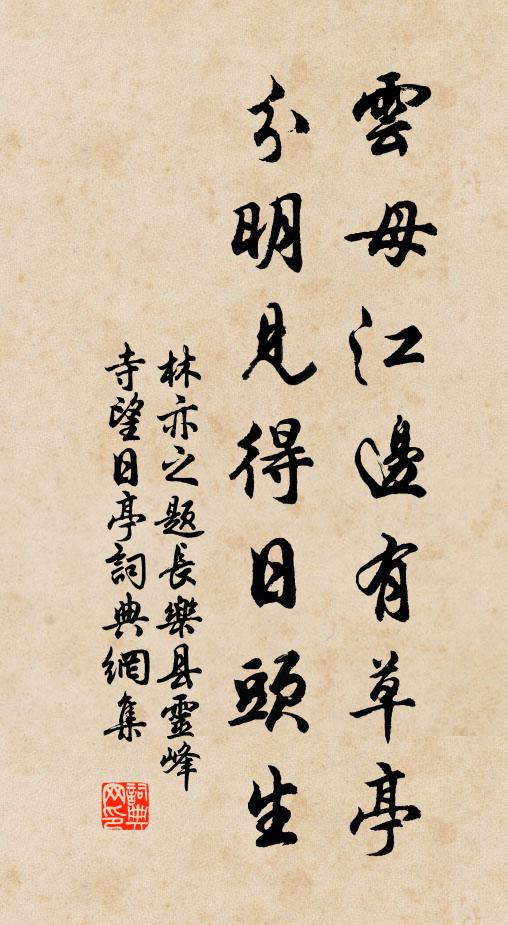 雲母江邊有草亭
分明見得日頭生
林亦之题長樂县靈峰
寺望日亭詞典網集
詞典
网印